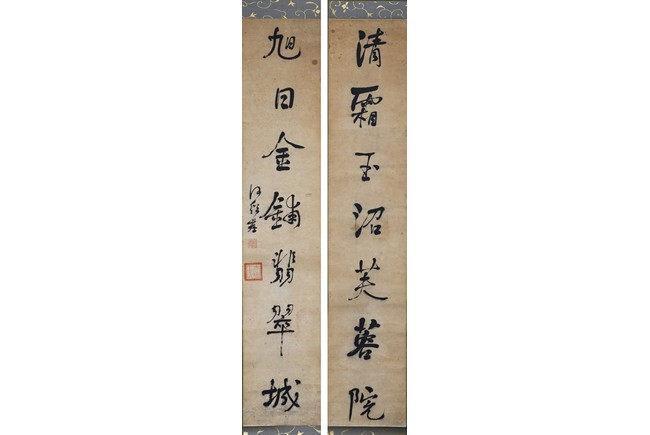 清霜玉沼芙蓉院
旭日金鋪翡翠城
何紹基